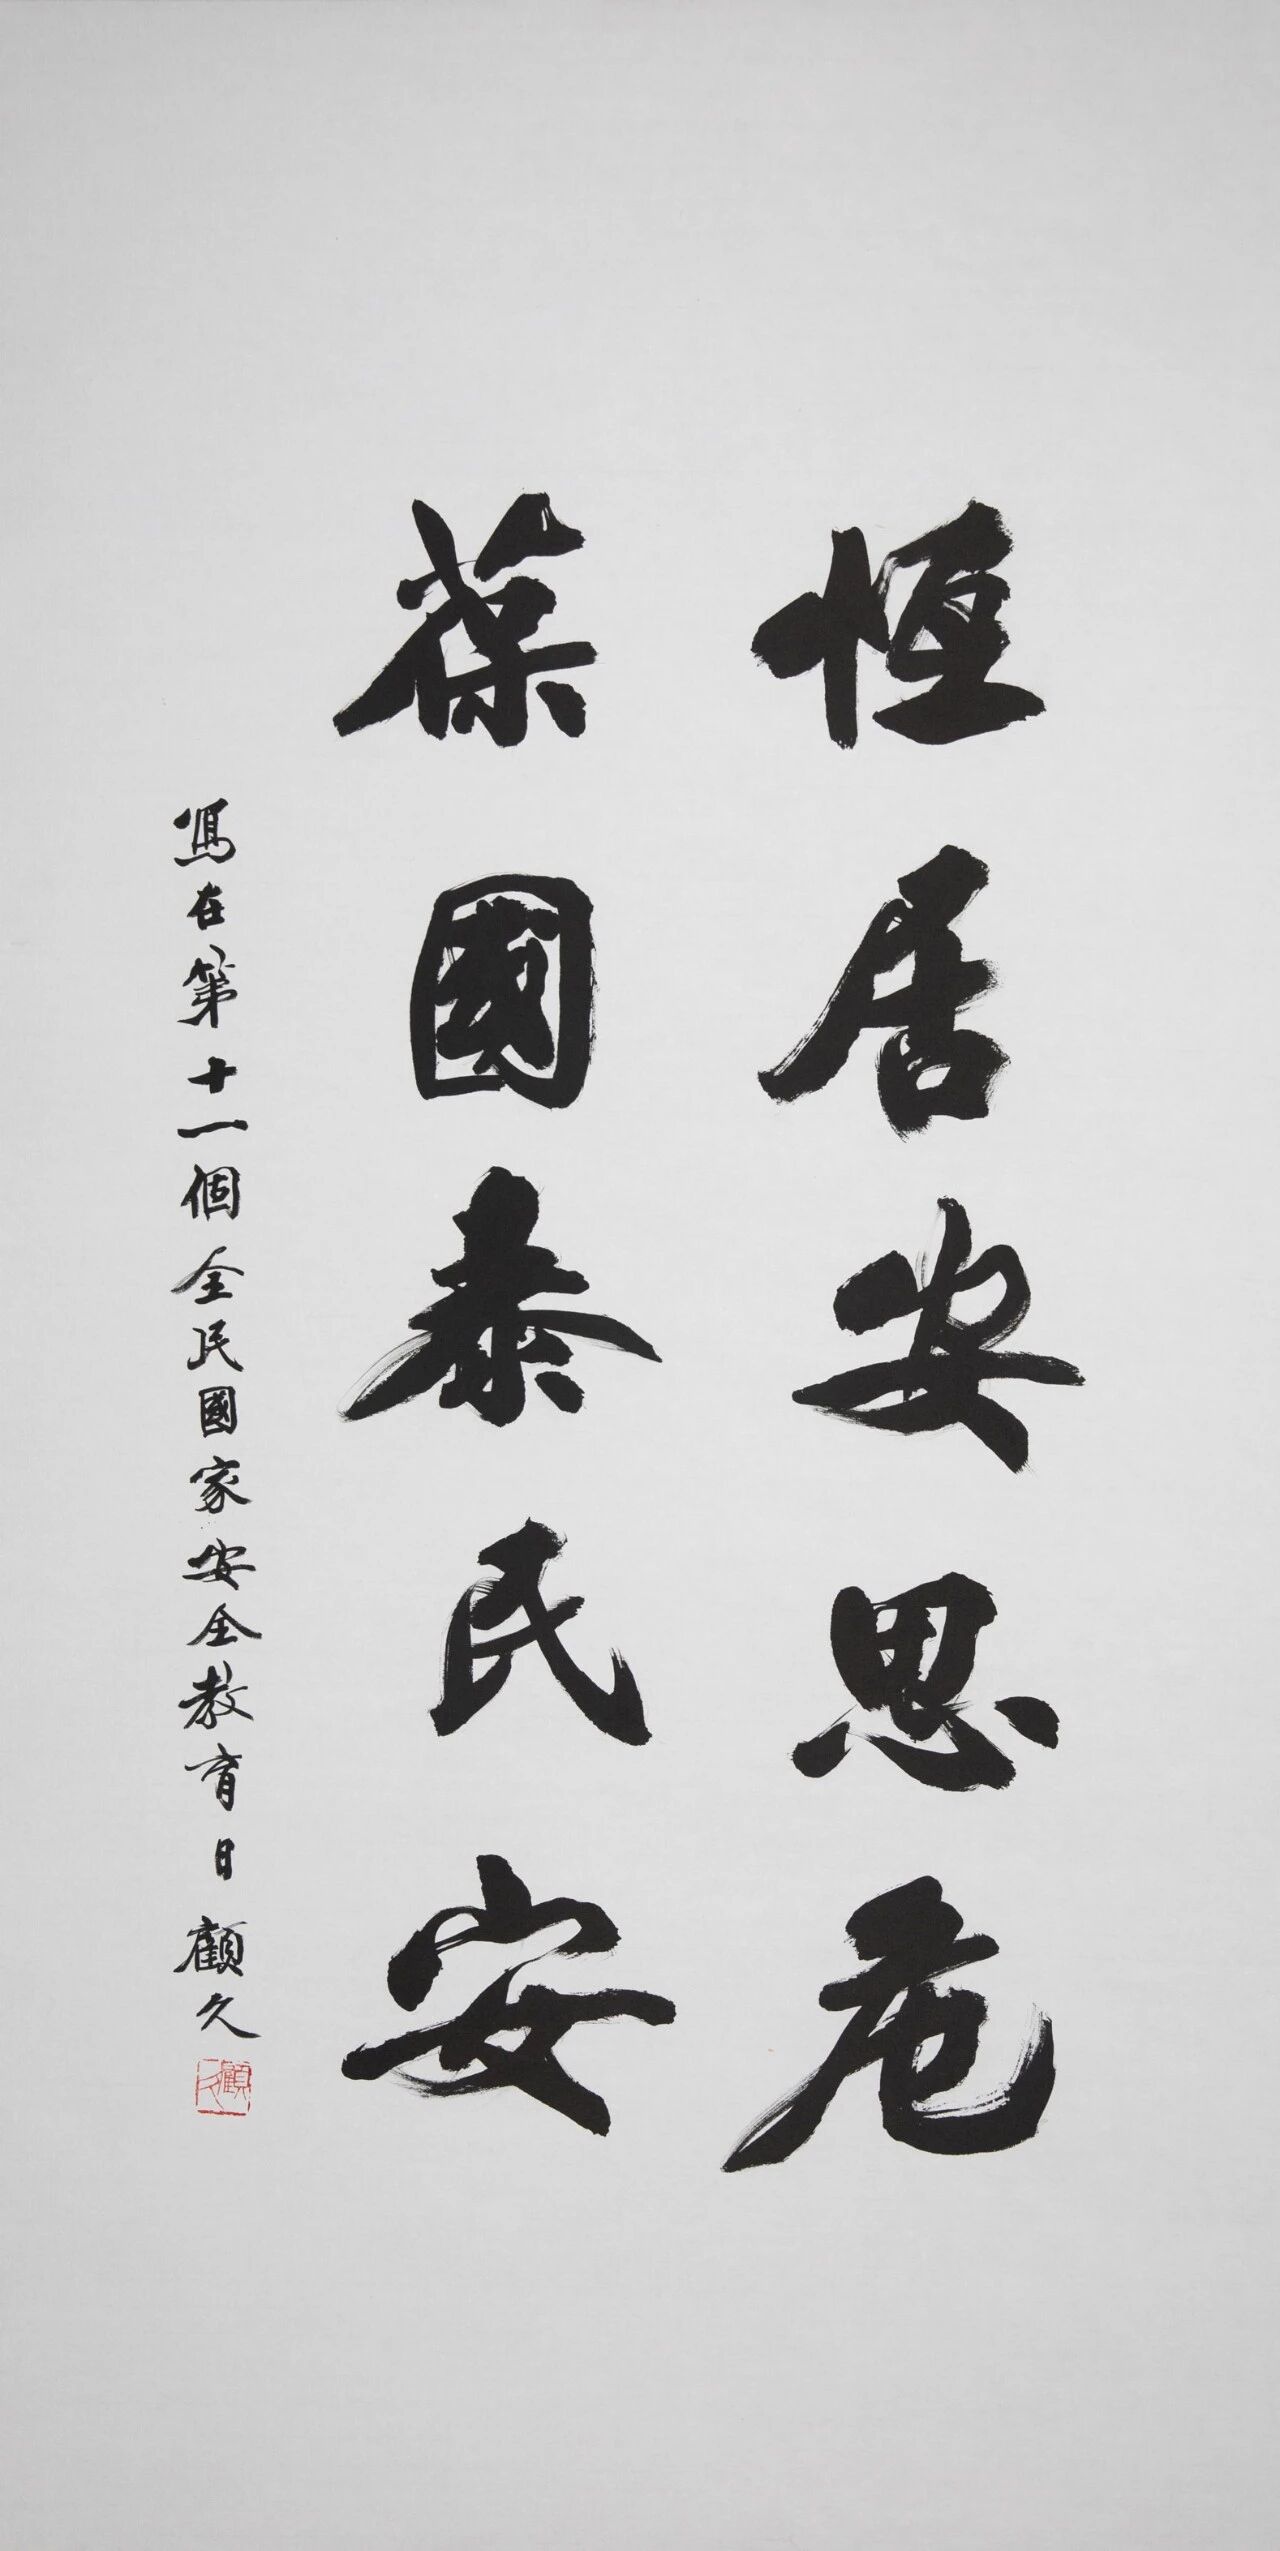 恆居安思危
葆國泰民安
寫在第十一個全民國家安全教育日 顧久
顧久